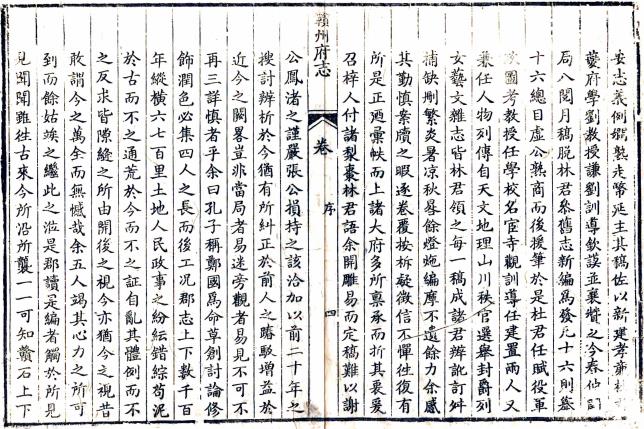 安志義例撰熟走幣延主其稿佐以新建孝
藝府學劉教授謙劉訓導欽謨並襄贊之今春伯訂
局八閱月稿脫林君叅舊志新編爲發凡十六則綦
十六總目虛公熟商而後援筆於是杜君任賦役軍
圖考教授任學校名宦寺觀訓導任建置兩人又
兼任人物列傳自天文地理山川秩官選舉封爵列
女藝文雜志皆林君領之每一稿成諸君辨訛訂舛
補缺刪繁炎暑凉秋晷餘燈灺編摩不遺餘力余感
其勤慎案牘之暇逐卷覆按析疑徵信不憚徃復有
所是正廼彙帙而上諸大府多所禀承而折其衷爰
召梓人付諸梨棗林君語余開雕易而定稿難以謝
贛州府志
卷
序
四
公鳳渚之謹嚴張公損持之該洽加以前二十年之
搜討辨析於今猶有所糾正於前人之踳駁增益於
近今之闕畧豈非當局者易迷旁觀者易見不可不
再三詳慎者乎余曰孔子稱鄭國爲命草創討論修
飾潤色必集四人之長而後工况郡志上下數千百
年縱横六七百里土地人民政事之紛紜錯綜苟泥
於古而不之通荒於今而不之証自亂其體例而不
之反求皆隙縫之所由開後之視今亦猶今之視昔
敢謂今之萬全而無憾哉余五人竭其心力之所可
到而餘姑竢之繼此之涖是郡讀是編者觸於所見
見聞聞雖徃古來今所沿所襲一一可知贛石上下